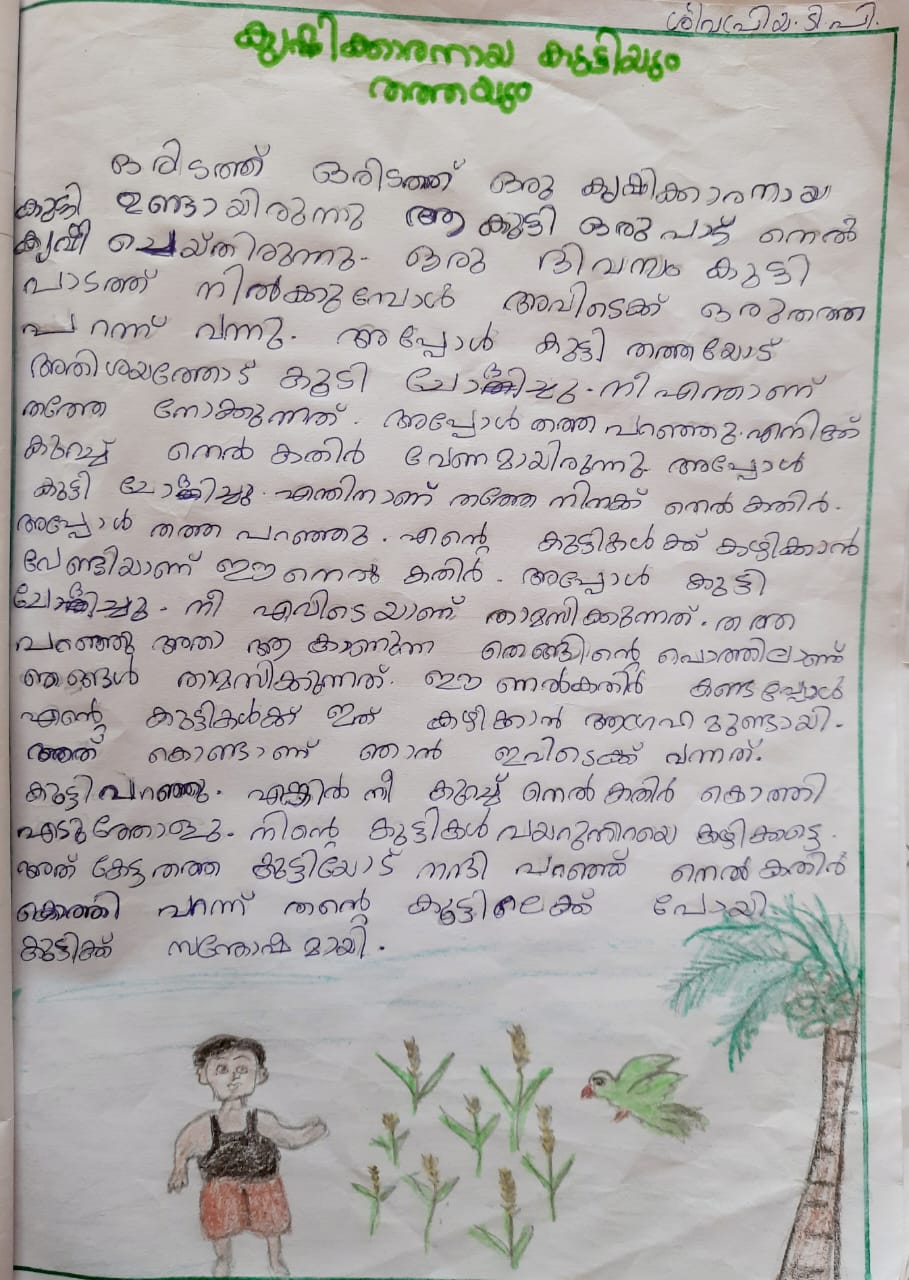 ശിവപ്രിയ. ടി. പി.
കൃഷിക്കാരനായ കുട്ടിയും
തത്തയും
ഒരിടത്ത് ഒരിടത്ത് ഒരു കൃഷിക്കാരനായ
കുട്ടി ഉണ്ടായിരുന്നു ആ കുട്ടി ഒരുപാട് നെൽ
കൃഷി ചെയ്തിരുന്നു. ഒരു ദിവസം കുട്ടി
പാടത്ത് നിൽക്കുമ്പോൾ അവിടെക്ക് ഒരുതത്ത
പറന്ന് വന്നു. അപ്പോൾ കുട്ടി തത്തയോട്
അതിശയത്തോട് കൂടി ചോദിച്ചു. നീ എന്താണ്
തത്തേ നോക്കുന്നത്. അപ്പോൾ തത്ത പറഞ്ഞു. എനിക്ക്
കുറച്ച് നെൽ കതിർ വേണമായിരുന്നു. അപ്പോൾ
കുട്ടി ചോദിച്ചു. എന്തിനാണ് തത്തേ നിനക്ക് നെൽ കതിർ.
അപ്പോൾ തത്ത പറഞ്ഞു. എന്റെ കുട്ടികൾക്ക് കഴിക്കാൻ
വേണ്ടിയാണ് ഈ നെൽ കതിർ. അപ്പോൾ കുട്ടി
ചോദിച്ചു. നീ എവിടെയാണ് താമസിക്കുന്നത്. തത്ത
പറഞ്ഞു അതാ ആ കാണുന്ന തെങ്ങിന്റെ പൊത്തിലാണ്
ഞങ്ങൾ താമസിക്കുന്നത്. ഈ ണൽകതിർ കണ്ടപ്പോൾ
എന്റെ കുട്ടികൾക്ക് ഇത് കഴിക്കാൻ ആഗ്രഹമുണ്ടായി.
അത് കൊണ്ടാണ് ഞാൻ ഇവിടെക്ക് വന്നത്.
കുട്ടി പറഞ്ഞു. എങ്കിൽ നീ കുറച്ച് നെൽ കതിർ കൊത്തി
എടുത്തോളു. നിന്റെ കുട്ടികൾ വയറുനിറയെ കഴിക്കട്ടെ.
അത് കേട്ട തത്ത കുട്ടിയോട് നന്ദി പറഞ്ഞ് നെൽ കതിർ
കൊത്തി പറന്ന് തന്റെ കൂട്ടിലെക്ക് പോയി
കുട്ടിക്ക് സന്തോഷമായി.